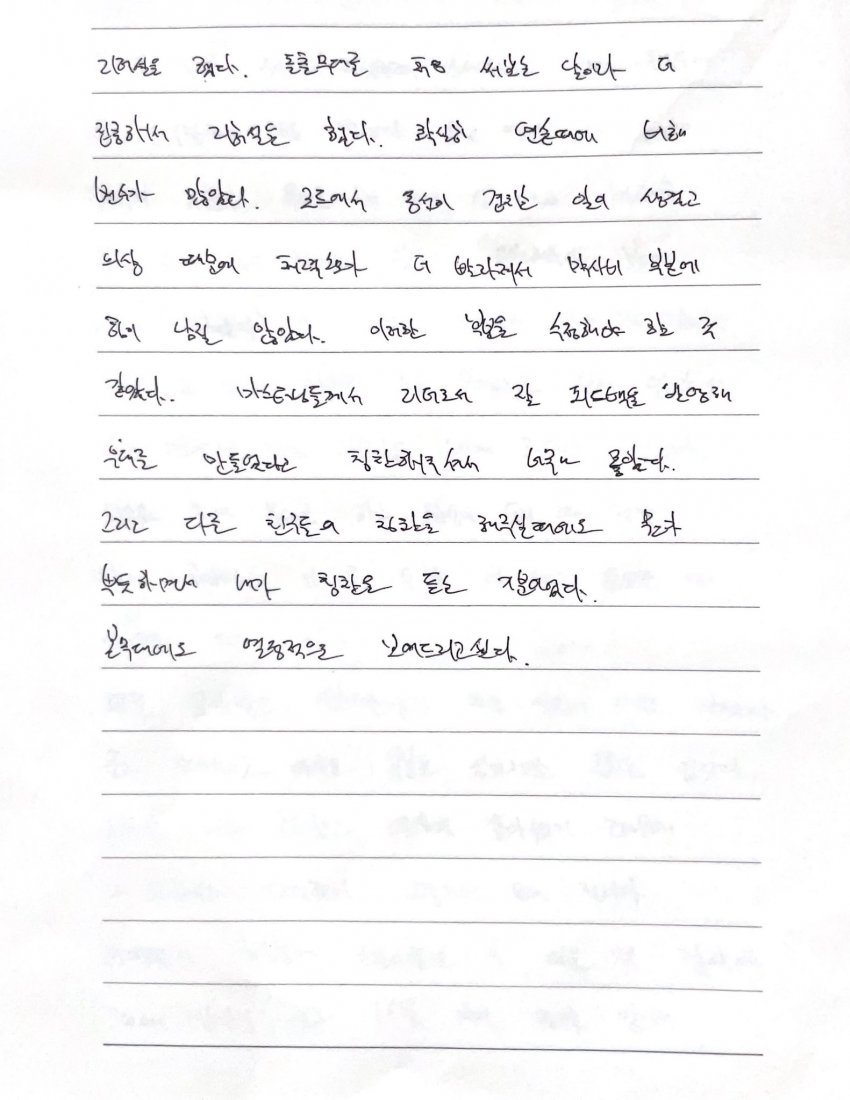 리허설을 했다. 돌출무대를 처음 써보는 날이라 더
집중해서 리허설을 했다. 확실히 연습때에 비해
변수가 많았다. 코르에서 동선이 겹치는 일이 생겼고
의상 때문에 체력소모가 더 빨라져서 마지막 부분에
힘이 남질 않았다. 이러한 부분을 수정해야 할 것
같았다. 마스터님들께서 리더로서 잘 피드백을 반영해
무대를 만들었다고 칭찬해주셔서 너무나 좋았다.
그리고 다른 친구들의 칭찬을 해주실때에도 뭔가
뿌듯하면서 내가 칭찬을 듣는 기분이었다.
본무대에도 열정적으로 보여드리고싶다.